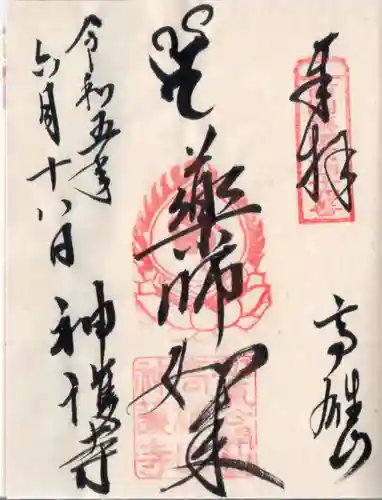 奉拝
高雄山
薬師如来
令和五年
六月十八日
神護寺